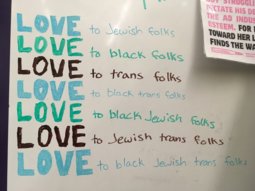 LOVE to Jewish folks
LOVE to black folks
LOVE to trans folks
LOVE to black trans folks
LOVE to black Jewish folks
LOVE to Jewish trans folks
LOVE to black Jewish trans folks
STRUGGL
DICTATE HIS DE
THE AD INDUS
ESTEEM. FOR
TOWARD HER L
FINDS THE WA